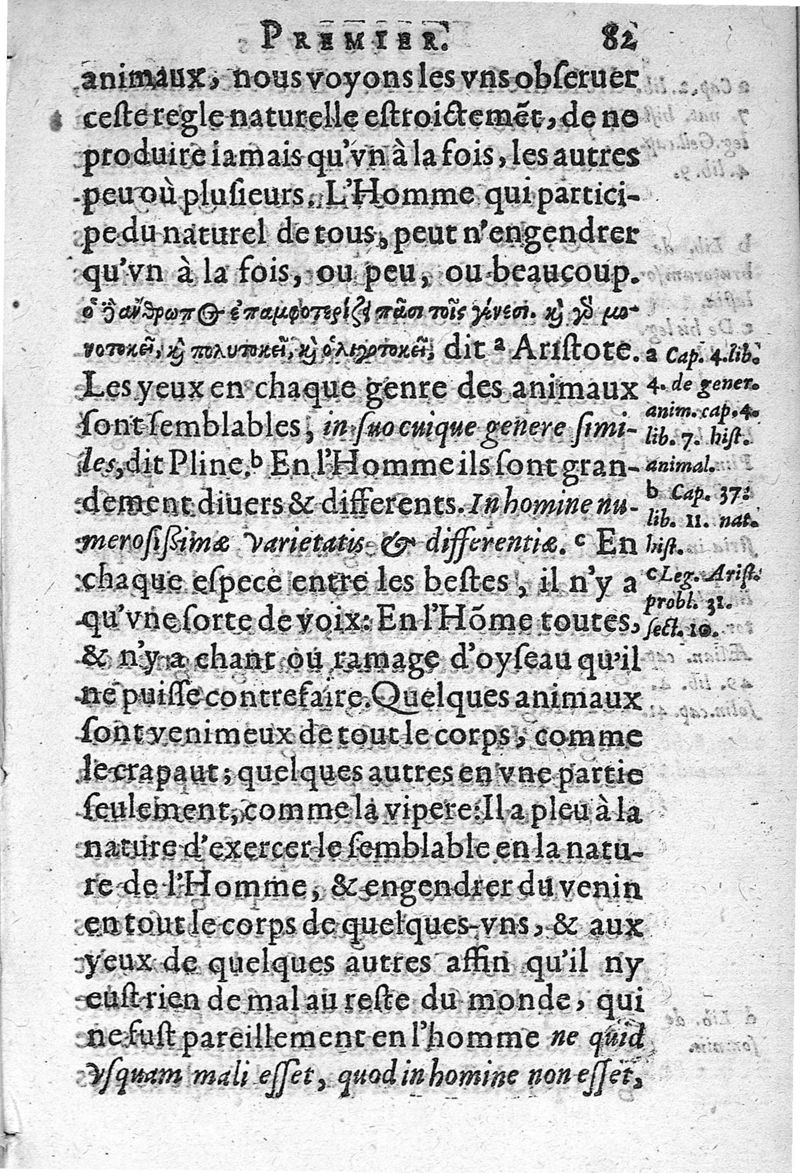 PREMIER. 82
animaux, nous voyons les vns obſeruer
ceſte regle naturelle eſtroictemēt, de ne
produire iamais qu'vn à la fois, les autres
peu où pluſieurs. L'Homme qui partici-
pe du naturel de tous, peut n'engendrer
qu'vn à la fois, ou peu, ou beaucoup.
ὁ δ' ἄνθρωπος ἐπαμφοτερίζει πᾶσι τοῖς γένεσι. καὶ γὰρ μο-
νοτοκεῖ, καὶ πολυτοκεῖ, καὶ ὀλιγοτοκεῖ, dit ª Ariſtote.
Les yeux en chaque genre des animaux
ſont ſemblables, in ſuo cuique genere ſimi-
les, dit Pline. ᵇ En l'Homme ils ſont gran-
dement diuers & differents. In homine nu-
meroſiſſimæ varietatis & differentiæ. ᶜ En
chaque eſpece entre les beſtes, il n'y a
qu'vne ſorte de voix: En l'Hōme toutes,
& n'y a chant ou ramage d'oyſeau qu'il
ne puiſſe contrefaire. Quelques animaux
ſont venimeux de tout le corps, comme
le crapaut; quelques autres en vne partie
ſeulement, comme la vipere: Il a pleu à la
nature d'exercer le ſemblable en la natu-
re de l'Homme, & engendrer du venin
en tout le corps de quelques-vns, & aux
yeux de quelques autres affin qu'il ny
euſt rien de mal au reſte du monde, qui
ne fuſt pareillement en l'homme ne quid
vſquam mali eſſet, quod in homine non eſſet,
a Cap. 4. lib.
4. de gener.
anim. cap. 4.
lib. 7. hiſt.
animal.
b Cap. 37.
lib. 11. nat.
hiſt.
c Leg. Ariſt.
probl. 31.
ſect. 10.